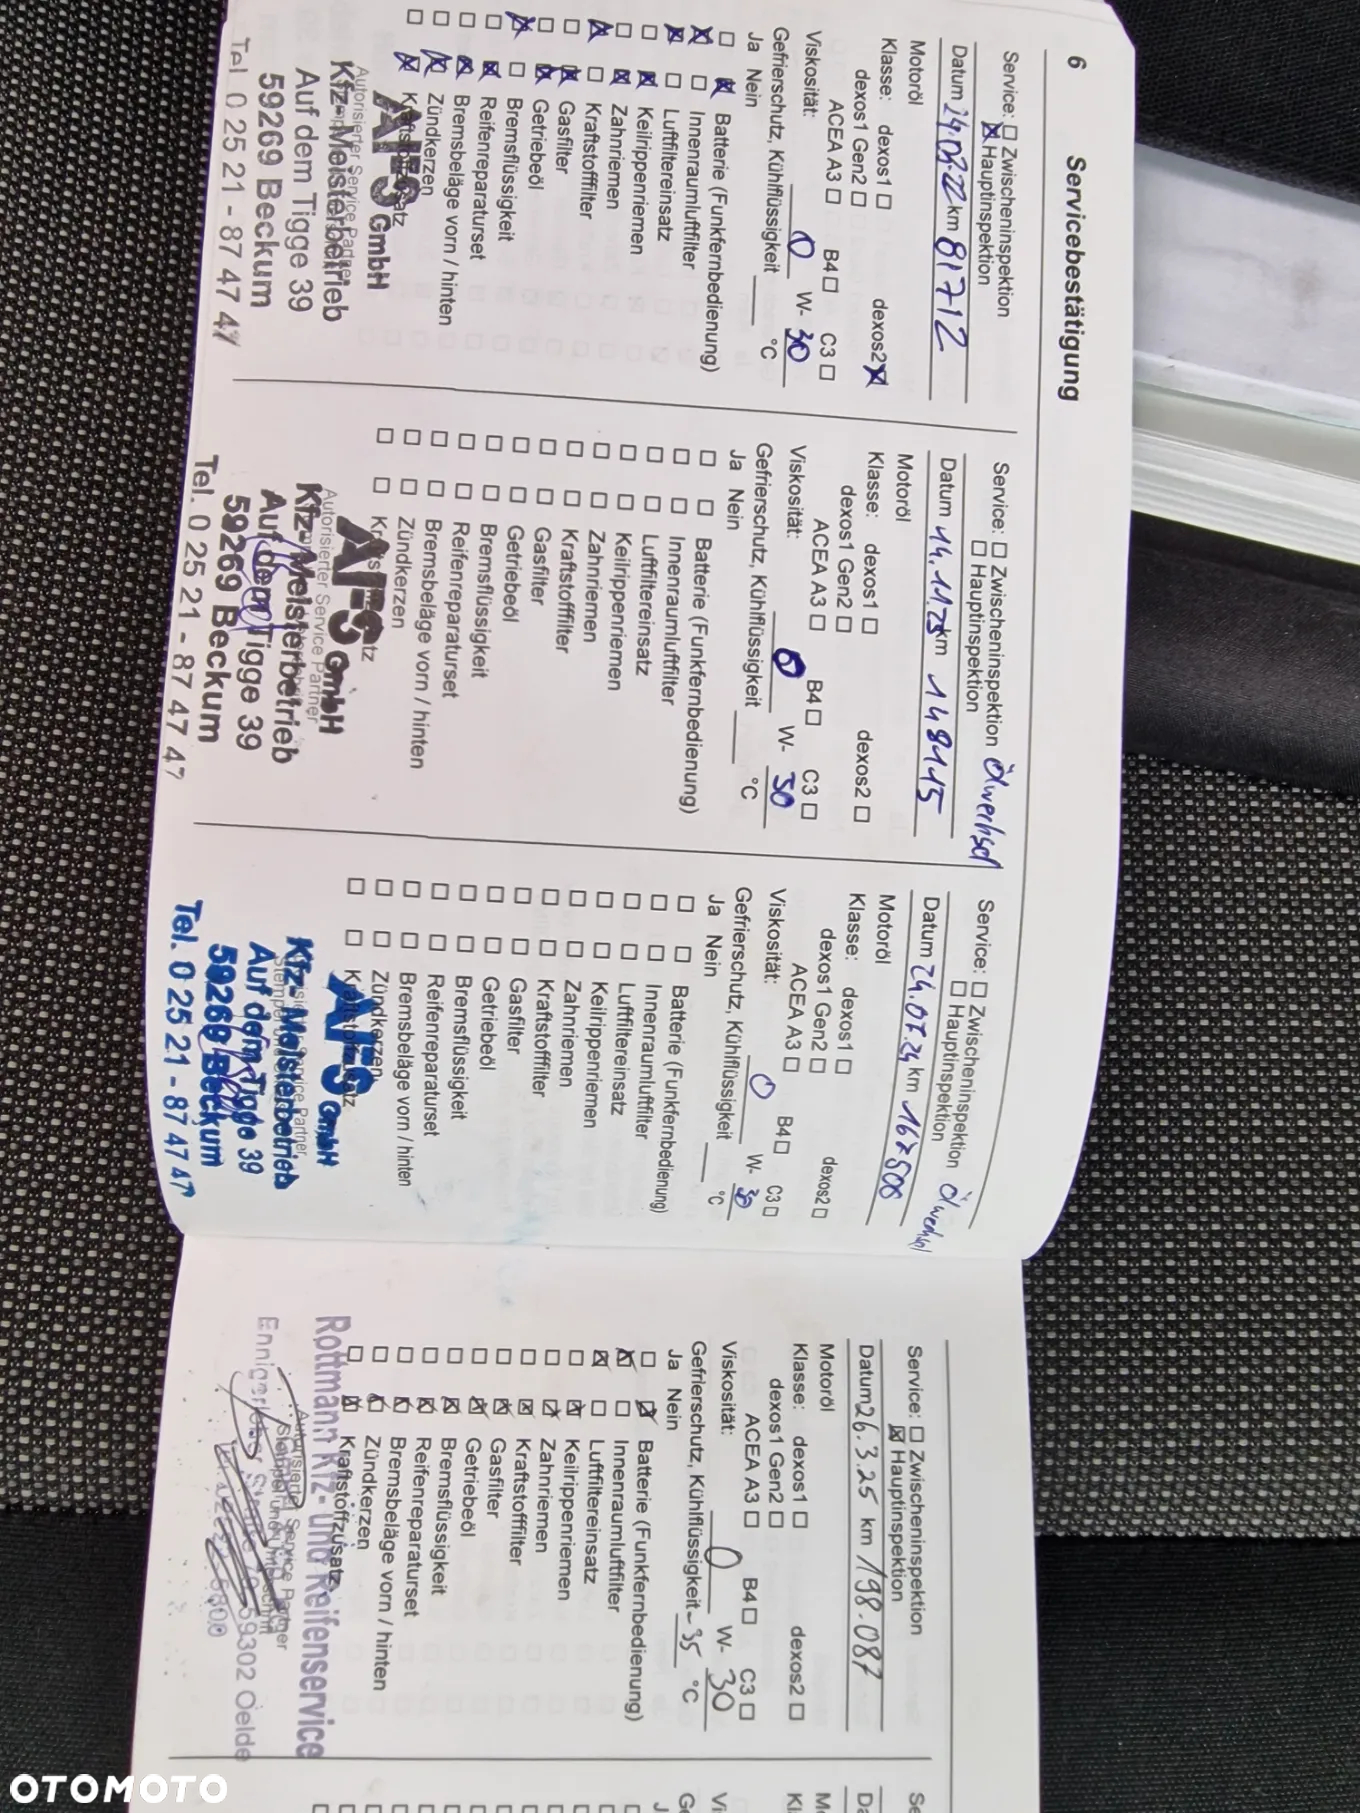 6 Servicebestätigung
Service: ☐ Zwischeninspektion
☒ Hauptinspektion
Datum 24.03.22 km 81712
Motoröl
Klasse: dexos1 ☐ dexos2 ☒
dexos1 Gen2 ☐
ACEA A3 ☐ B4 ☐ C3 ☐
Viskosität: 0 W- 30
Gefrierschutz, Kühlflüssigkeit ___ °C
Ja Nein
☐ ☒ Batterie (Funkfernbedienung)
☒ ☐ Innenraumluftfilter
☒ ☐ Luftfiltereinsatz
☐ ☒ Keilrippenriemen
☐ ☒ Zahnriemen
☒ ☐ Kraftstofffilter
☐ ☒ Gasfilter
☐ ☒ Getriebeöl
☒ ☐ Bremsflüssigkeit
☐ ☒ Reifenreparaturset
☐ ☒ Bremsbeläge vorn / hinten
☐ ☒ Zündkerzen
☐ ☒
AFS GmbH
Autorisierter Service Partner
Kfz-Meisterbetrieb
Auf dem Tigge 39
59269 Beckum
Tel. 0 25 21 - 87 47 47
Service: ☐ Zwischeninspektion Ölwechsel
☐ Hauptinspektion
Datum 14.11.23 km 148115
Motoröl
Klasse: dexos1 ☐ dexos2 ☐
dexos1 Gen2 ☐
ACEA A3 ☐ B4 ☐ C3 ☐
Viskosität: 0 W- 30
Gefrierschutz, Kühlflüssigkeit ___ °C
Ja Nein
☐ ☐ Batterie (Funkfernbedienung)
☐ ☐ Innenraumluftfilter
☐ ☐ Luftfiltereinsatz
☐ ☐ Keilrippenriemen
☐ ☐ Zahnriemen
☐ ☐ Kraftstofffilter
☐ ☐ Gasfilter
☐ ☐ Getriebeöl
☐ ☐ Bremsflüssigkeit
☐ ☐ Reifenreparaturset
☐ ☐ Bremsbeläge vorn / hinten
☐ ☐ Zündkerzen
☐ ☐
AFS GmbH
Autorisierter Service Partner
Kfz-Meisterbetrieb
Auf dem Tigge 39
59269 Beckum
Tel. 0 25 21 - 87 47 47
Service: ☐ Zwischeninspektion Ölwechsel
☐ Hauptinspektion
Datum 24.07.24 km 167500
Motoröl
Klasse: dexos1 ☐ dexos2 ☐
dexos1 Gen2 ☐
ACEA A3 ☐ B4 ☐ C3 ☐
Viskosität: 0 W- 30
Gefrierschutz, Kühlflüssigkeit ___ °C
Ja Nein
☐ ☐ Batterie (Funkfernbedienung)
☐ ☐ Innenraumluftfilter
☐ ☐ Luftfiltereinsatz
☐ ☐ Keilrippenriemen
☐ ☐ Zahnriemen
☐ ☐ Kraftstofffilter
☐ ☐ Gasfilter
☐ ☐ Getriebeöl
☐ ☐ Bremsflüssigkeit
☐ ☐ Reifenreparaturset
☐ ☐ Bremsbeläge vorn / hinten
☐ ☐ Zündkerzen
☐ ☐ Kraftstoffzusatz
AFS GmbH
Kfz-Meisterbetrieb
Auf dem Tigge 39
59269 Beckum
Tel. 0 25 21 - 87 47 47
Service: ☐ Zwischeninspektion
☒ Hauptinspektion
Datum 26.3.25 km 198.087
Motoröl
Klasse: dexos1 ☐ dexos2 ☐
dexos1 Gen2 ☐
ACEA A3 ☐ B4 ☐ C3 ☐
Viskosität: 0 W- 30
Gefrierschutz, Kühlflüssigkeit -35 °C
Ja Nein
☐ ☒ Batterie (Funkfernbedienung)
☒ ☐ Innenraumluftfilter
☒ ☐ Luftfiltereinsatz
☐ ☒ Keilrippenriemen
☐ ☒ Zahnriemen
☐ ☒ Kraftstofffilter
☐ ☒ Gasfilter
☐ ☒ Getriebeöl
☐ ☒ Bremsflüssigkeit
☐ ☒ Reifenreparaturset
☐ ☒ Bremsbeläge vorn / hinten
☐ ☒ Zündkerzen
☐ ☒ Kraftstoffzusatz
Rottmann Kfz- und Reifenservice
Autorisierter Service Partner
Stempel und Unterschrift
59302 Oelde
OTOMOTO